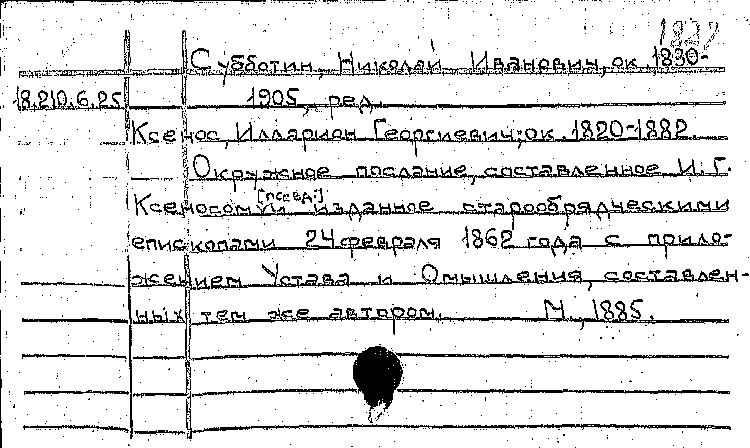 1832
Субботин, Николай Иванович, ок. 1830-
18.210.6.25 1905, ред.
Ксенос, Илларион Георгиевич; ок. 1820-1882.
Окружное послание, составленное И. Г.
[псевд.]
Ксеносом и изданное старообрядческими
епископами 24 февраля 1862 года с прило-
жением Устава и Омышления, составлен-
ных тем же автором. М., 1885.